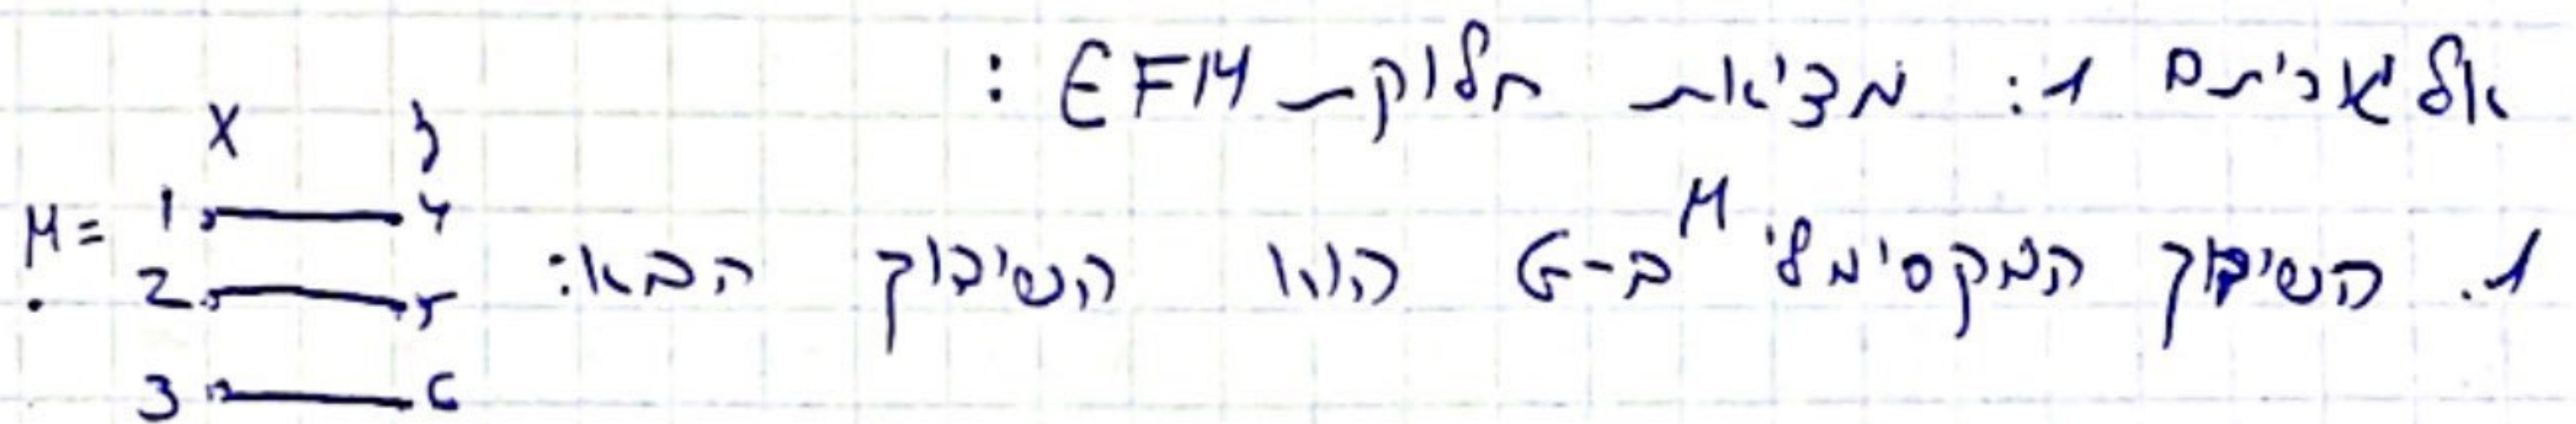 אלגוריתם 1: מציאת חלוקת EFM :
1. השידוך המקסימלי M ב-G הוא השידוך הבא:
M=
X Y
1 4
2 5
3 6